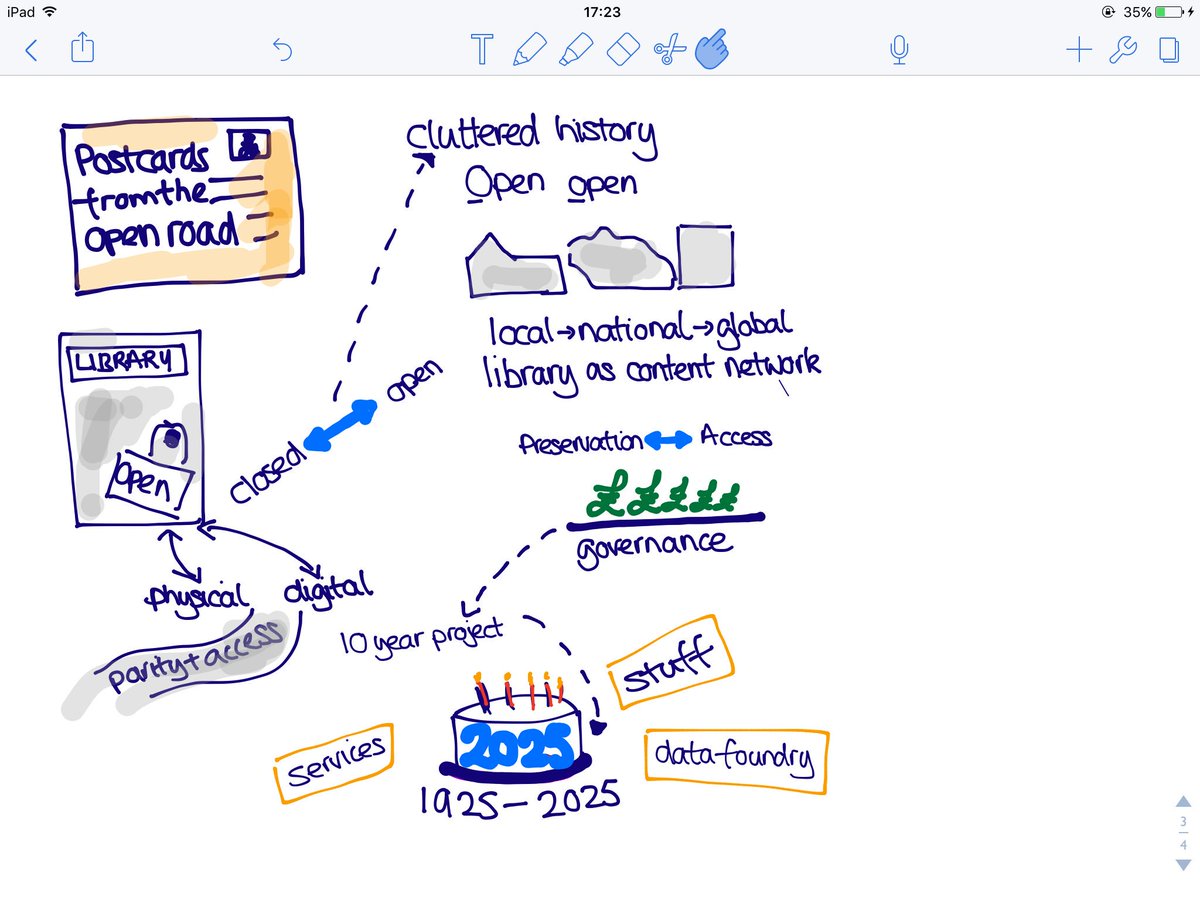 iPad
17:23
35%
T
Postcards
from the
open road
cluttered history
Open open
local→national→global
library as content network
LIBRARY
Open
closed
open
Preservation
Access
£££££
governance
physical
digital
parity + access
10 year project
stuff
services
2025
data foundry
1925-2025
3
4